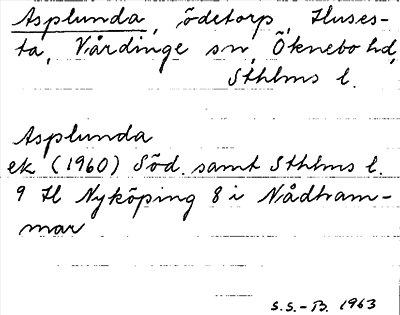 Asplunda, ödetorp, Huses-
ta, Vårdinge sn, Öknebo hd,
Sthlms l.
Asplunda
ek (1960) Söd. samt Sthlms l.
9 H Nyköping 8 i Nådham-
mar
S.S.-B. 1963